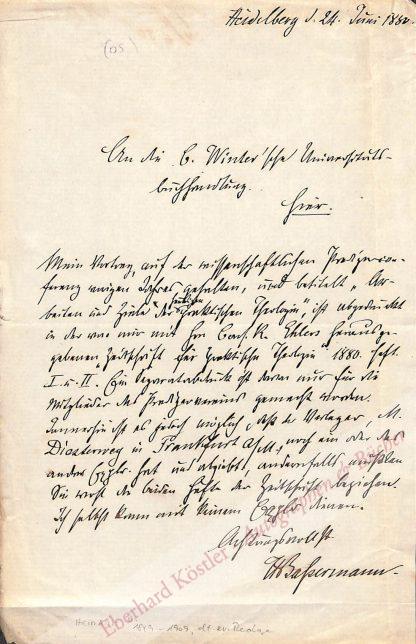 Heidelberg d. 24. Juni 1880.
(DS)
An die C. Winter'sche Universitäts-
buchhandlung.
Hier.
Mein Vortrag, auf der wissenschaftlichen Predigercon-
ferenz vorigen Jahres gehalten, und betitelt „Ar-
beiten und Ziele der heutigen praktischen Theologie", ist abgedruckt
in der von mir mit Hrn Cons. R. Ehlers herausge-
gebenen Zeitschrift für praktische Theologie" 1880. Heft
I u. II. Ein Separatabdruck ist davon nur für die
Mitglieder des Predigervereins gemacht worden.
Immerhin ist es jedoch möglich, daß der Verleger, M.
Diesterweg in Frankfurt a/M., noch ein oder das
andre Expl. hat und abgiebt, andernfalls müßten
Sie wohl die beiden Hefte der Zeitschrift beziehen.
Ich selbst kann mit keinem Expl. dienen.
Achtungsvollst
HBassermann
Eberhard Köstler Autographen & Bücher
1849 - 1909, dt. ev. Theologe